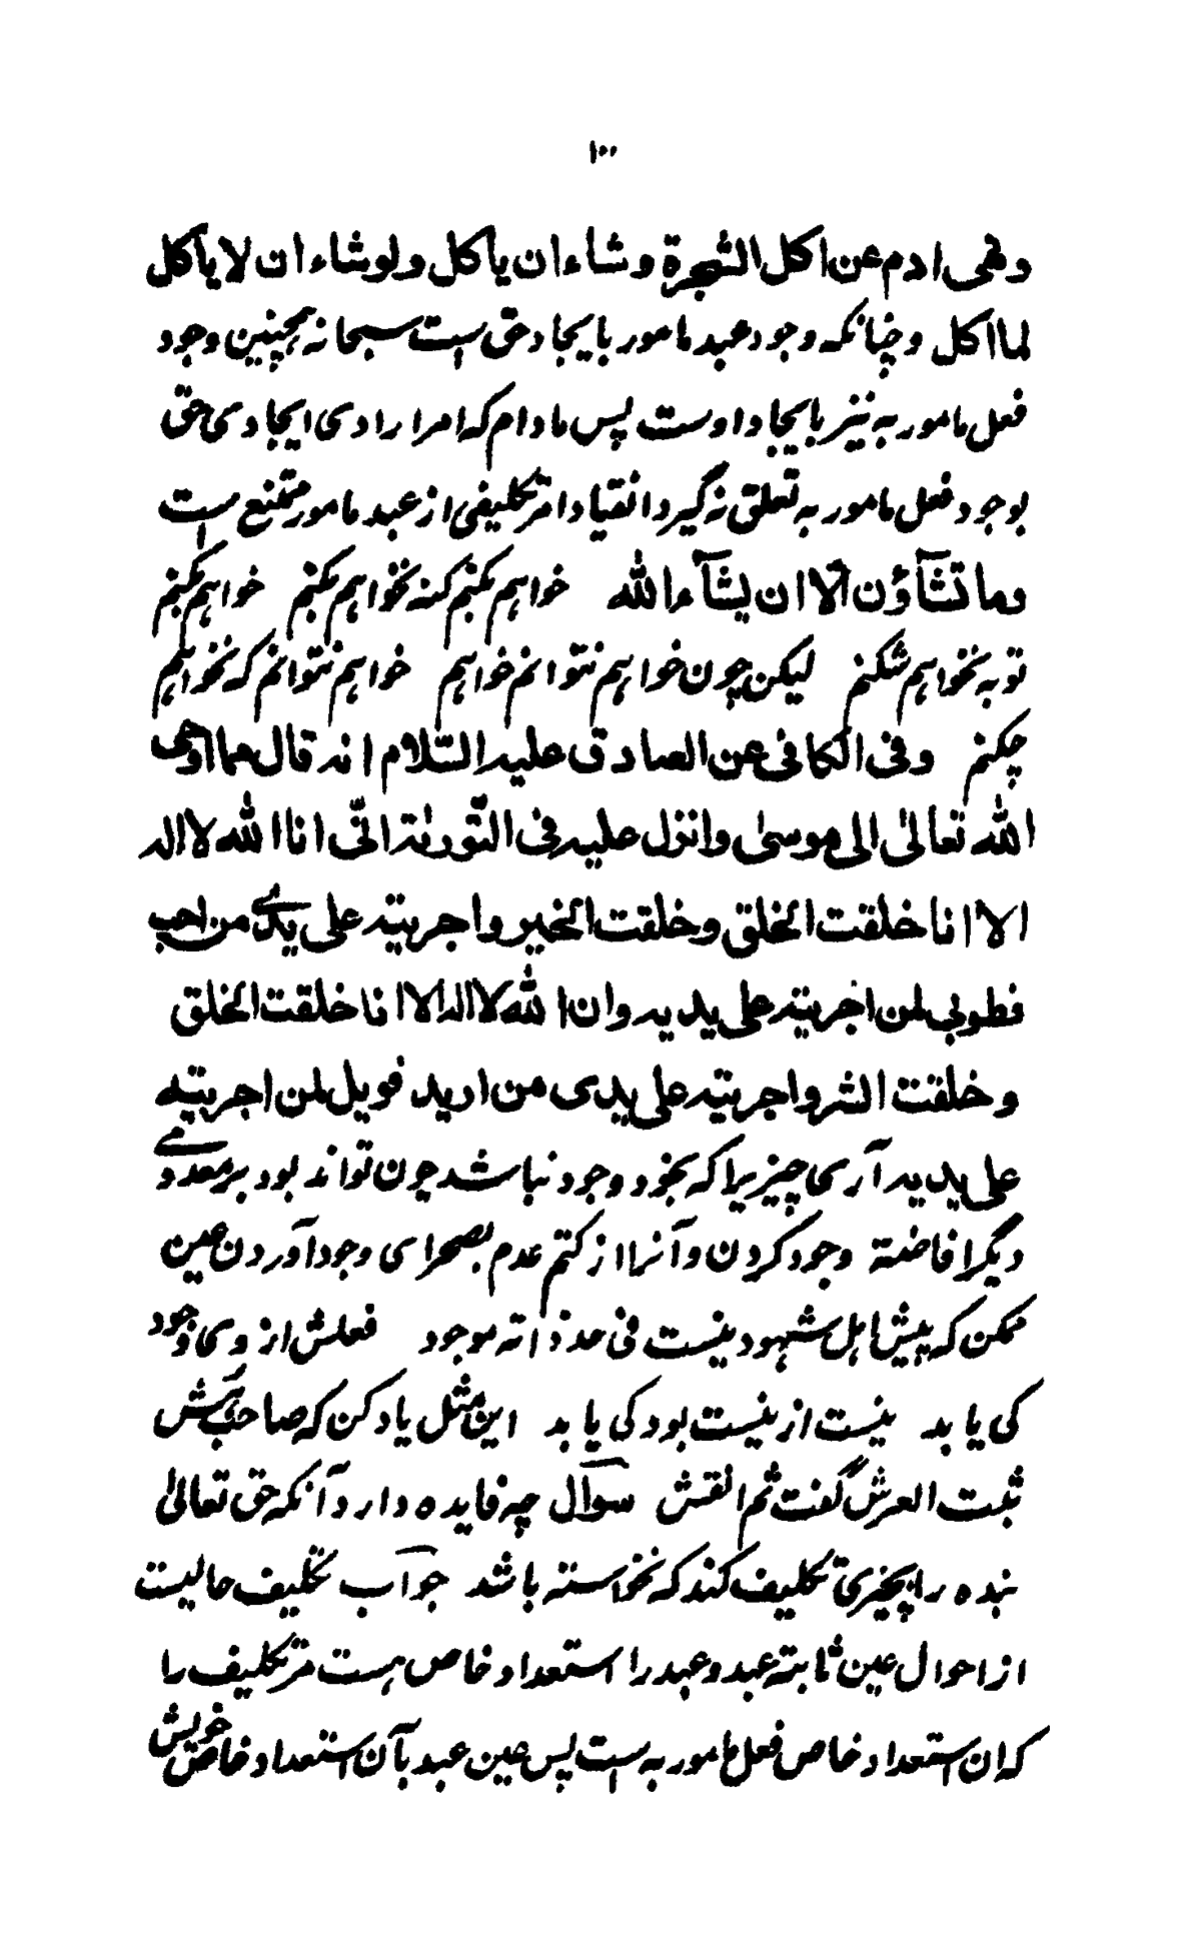 ۱۰۰
ونهی ادم عن اکل الشجرة وشاء ان یأکل ولو شاء ان لا یأکل
لما اکل وچنانکه وجود عبد مامور بایجاد حق است سبحانه همچنین وجود
فعل مامور به نیز بایجاد اوست پس مادام که امر ارادی ایجادی حق
بوجود فعل مامور به تعلق نگیرد انقیاد امر تکلیفی از عبد مامور ممتنع است
وما تشآؤن الا ان یشآء الله خواهم بکنم کنه نخواهم بکنم خواهم بکنم
توبه نخواهم شکنم لیکن چون خواهم نتوانم خواهم خواهم نتوانم که نخواهم
چکنم وفی الکافی عن الصادق علیه السلام انه قال مما اوحی
الله تعالی الی موسیٰ وانزل علیه فی التّوریٰة انّی انا الله لا اله
الا انا خلقت الخلق وخلقت الخیر واجریته علی یدی من احب
فطوبی لمن اجریته علی یدیه وان الله لا اله الا انا خلقت الخلق
وخلقت الشر واجریته علی یدی من ارید فویل لمن اجریته
علی یدیه آری چیزیرا که بخود وجود نباشد چون تواند بود بر معدومی
دیگر افاضهٔ وجود کردن و آنرا از کتم عدم بصحرای وجود آوردن عین
ممکن که پیش اهل شهود نیست فی حد ذاته موجود فعلش از وی وجود
کی یابد نیست از نیست بود کی یابد این مثل یاد کن که صاحب کش
ثبت العرش گفت ثم انقش سوال چه فایده دارد آنکه حق تعالیٰ
بنده را بچیزی تکلیف کند که نخواسته باشد جواب تکلیف حالیست
از احوال عین ثابتهٔ عبد وعبد را استعداد خاص هست مر تکلیف را
که ان استعداد خاص فعل مامور به است پس عین عبد بآن استعداد خاص خویش